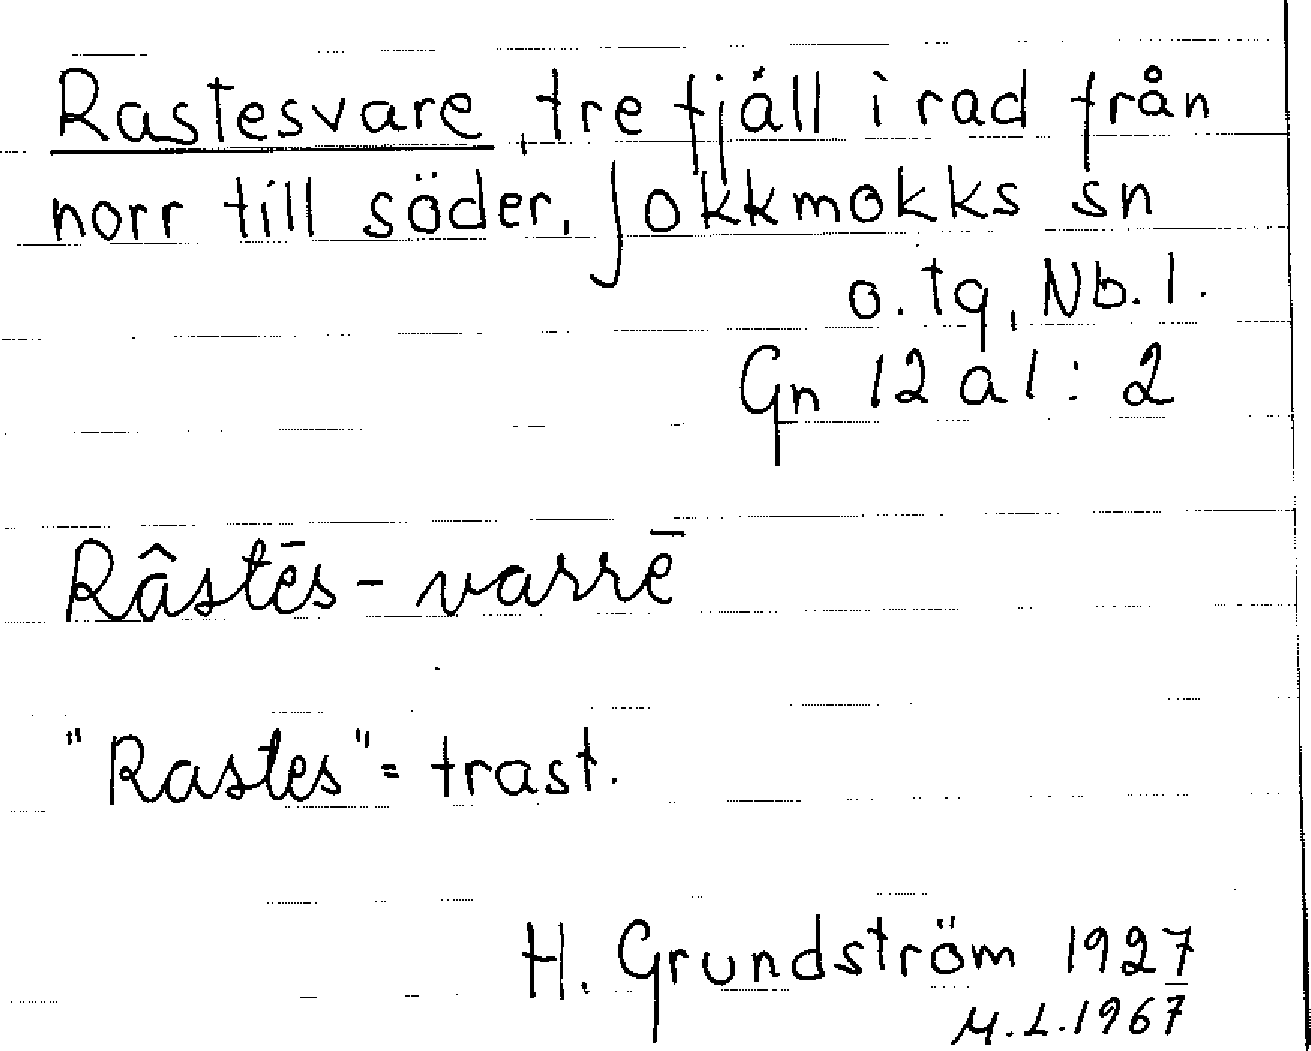 Rastesvare, tre fjäll i rad från
norr till söder, Jokkmokks sn
o. tg, Nb. l.
Gn 12 a 1 : 2
Râstēs - varrē
"Rastes" = trast.
H. Grundström 1927
M.L. 1967